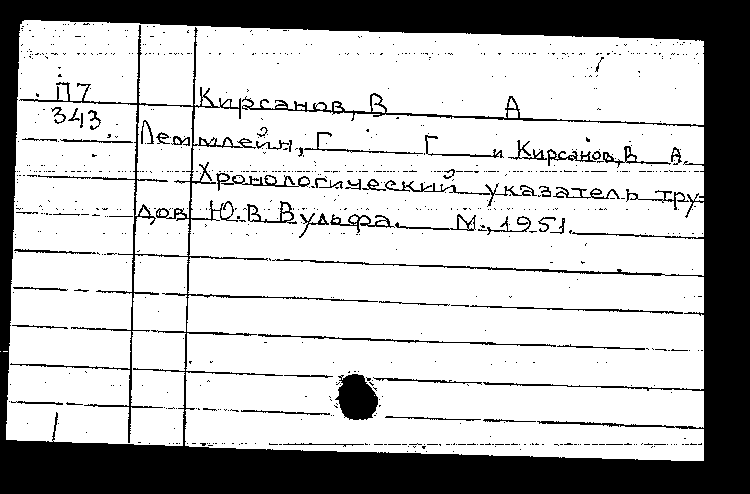 П7
343
Кирсанов, В. А
Леммлейн, Г. Г. и Кирсанов, В. А.
Хронологический указатель тру-
дов Ю.В. Вульфа. М., 1951.